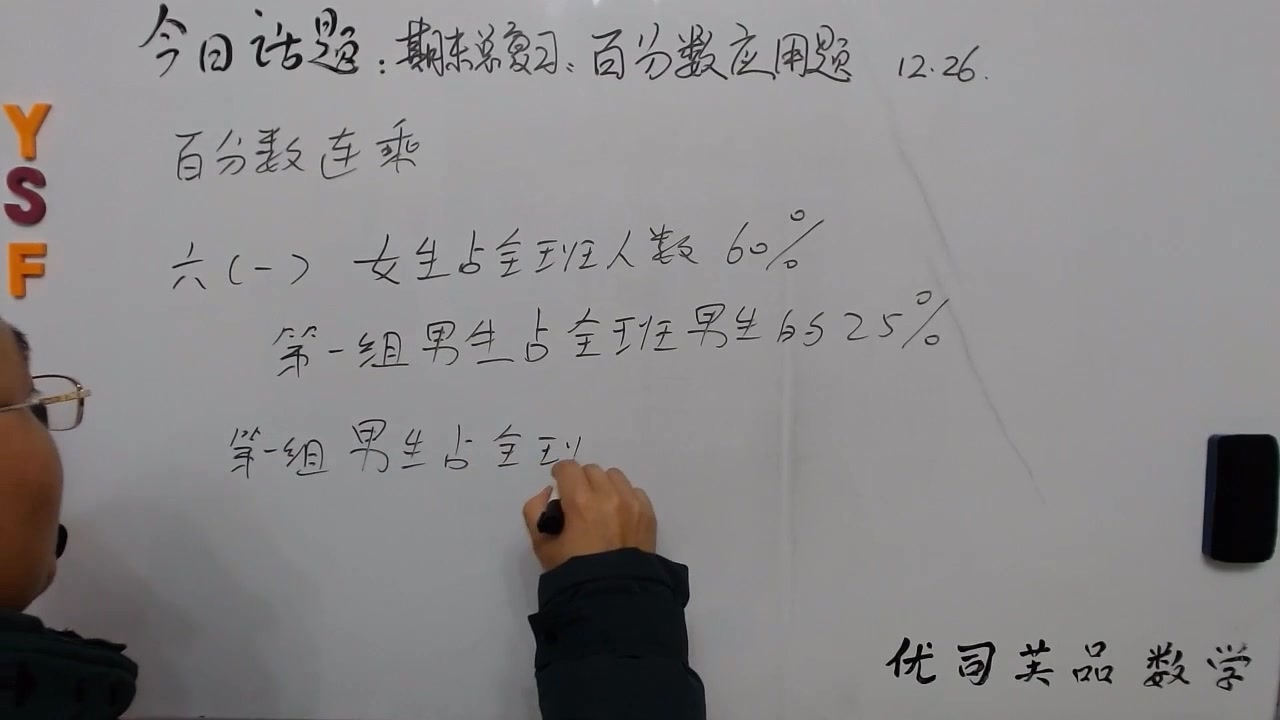 今日话题：期末总复习、百分数应用题 12.26.
Y
S
F
百分数连乘
六(一) 女生占全班人数60%
第一组男生占全班男生的25%
第一组男生占全
优司英品数学